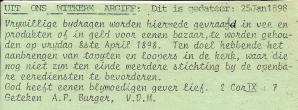 UIT ONS WITKERK ARGIEF: Dit is gedateer: 25Jan1898
Vrywillige bydragen worden hiermede gevraagd in vee en
produkten of in geld voor eenen bazaar, te worden gehou-
den op vrydag 8ste April 1898. Ten doel hebbende het
aanbrengen van tapyten en loopers in de kerk, waar die
nog niet zyn tot meerdere stichting by de openba-
re eerediensten te bevorderen.
God heeft eenen blymoedigen gever lief. 2 Cor IX : 7
Geteken A.P. Burger, V.D.M.